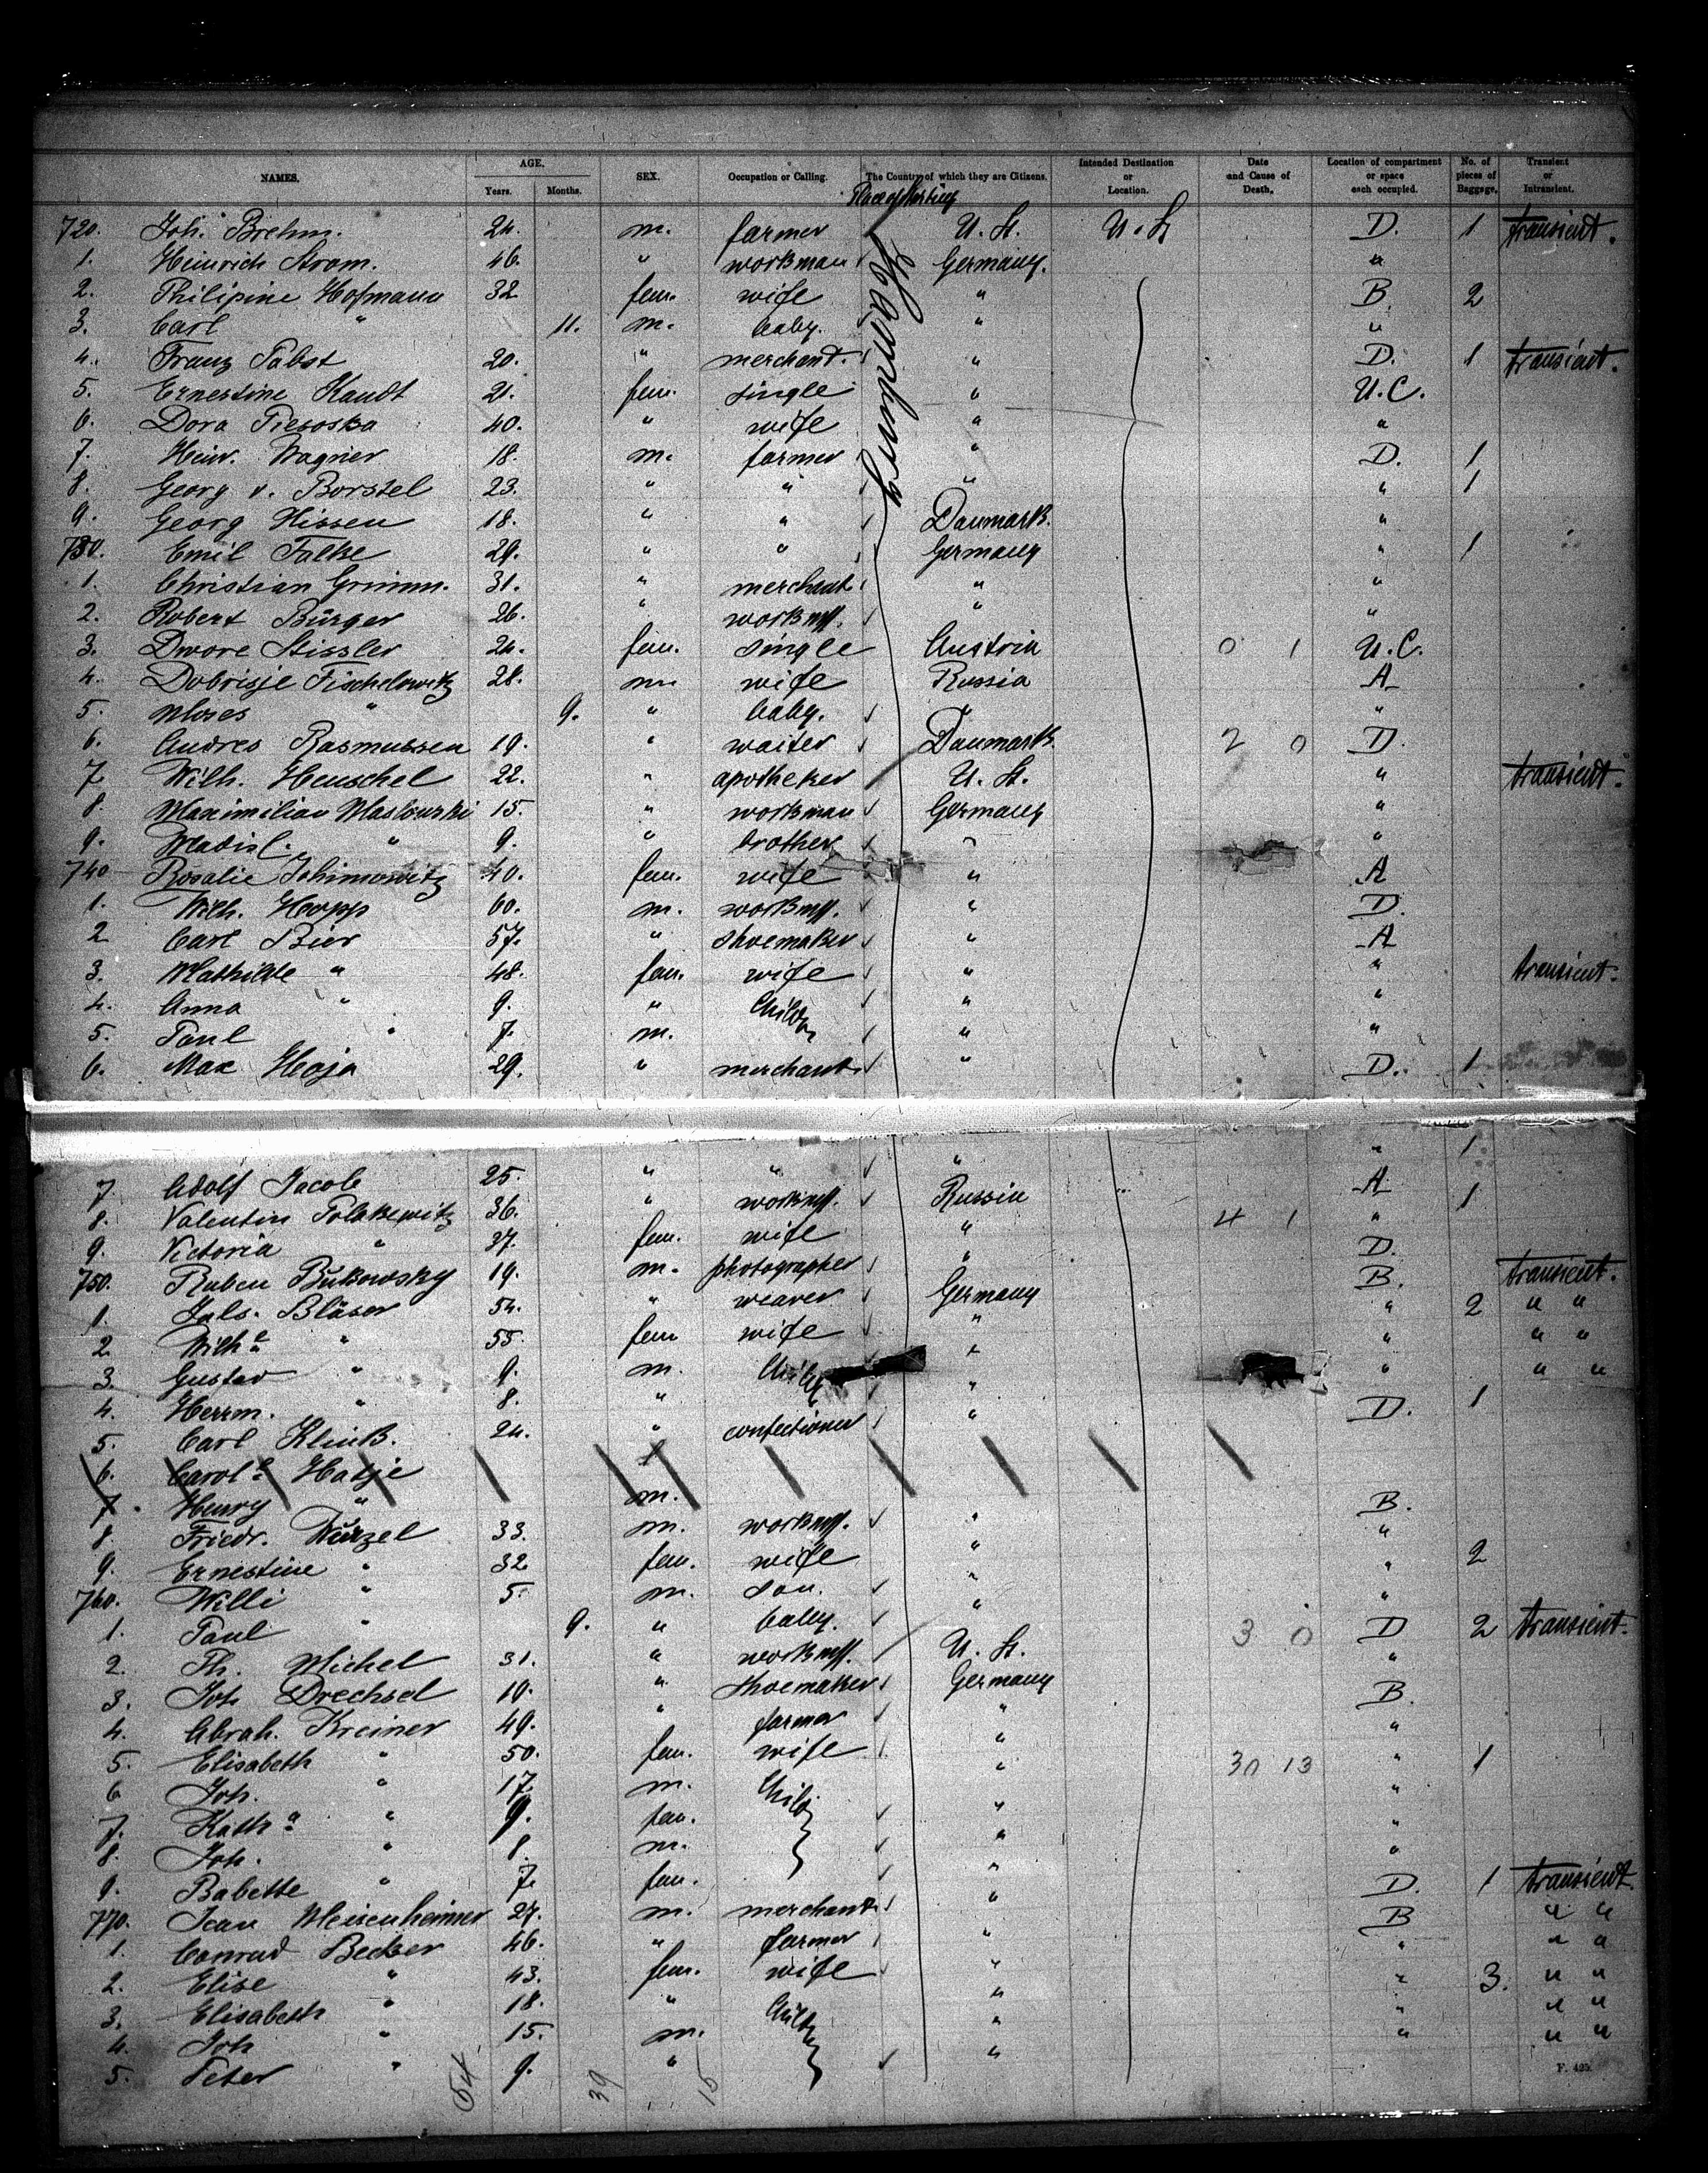 NAMES. AGE. Years. Months. SEX. Occupation or Calling. The Country of which they are Citizens. Intended Destination or Location. Date and Cause of Death. Location of compartment or space each occupied. No. of pieces of Baggage. Transient or Intransient.
Place of
Hamburg
720. Joh. Brehm. 24. m. farmer U. St. U. St D. 1 transient.
1. Heinrich Strom. 46. " workman Germany. "
2. Philipine Hofmann 32 fem. wife " B. 2
3. Carl " 11. m. baby. " "
4. Franz Pabst 20. " merchant. " D. 1 transient.
5. Ernestine Kandt 21. fem. single " U.C.
6. Dora 40. " wife " "
7. Heinr. Wagner 18. m. farmer " D. 1
8. Georg v. Borstel 23. " " " " 1
9. Georg Hissen 18. " " Danmark. "
730. Emil Falke 29. " " Germany " 1
1. Christian Grimm. 31. " merchant " "
2. Robert Bürger 26. " " "
3. Dwore Stissler 24. fem. single Austria 0 1 U.C.
4. Dobrisje Fischelowitz 28. m. wife Russia A
5. Moses " 9. " baby. " "
6. Andres Rasmussen 19. " waiter Danmark. 2 0 D.
7. Wilh. Henschel 22. " apotheker U. St. " transient.
8. Maximilian Maslowski 15. " workman Germany "
9. Wladisl. " 9. " brother " "
740 Rosalie 40. fem. wife " A
1. Wilh. Hopp 60. m. " D.
2 Carl Bier 57. " shoemaker " A
3. Mathilde " 48. fem. wife " " transient.
4. Anna " 9. " Child " "
5. Paul " 7. m. " "
6. Max Hoja 29. " merchant " D. 1
7. Adolf Jacob 25. " " " " 1
8. Valentin 36. " Russia A 1
9. Victoria " 37. fem. wife " 4 1 "
750. Ruben Bukowsky 19. m. photographer " D.
1. Jals. Bläser 54. " weaver Germany B. transient.
2. Wilh.e " 55. fem wife " " 2 " "
3. Gustav " 9. m. " " " "
4. Herrm. " 8. " " " " "
5. Carl Klink. 24. " confectioner " D. 1
6. Carol.e Hatje
7. Henry " m.
8. Friedr. Wurzel 33. m. " B.
9. Ernestine " 32 fem. wife " "
760. Willi " 5. m. son. " " 2
1. Paul " 9. " baby. " "
2. Ph. Michel 31. " U. St. 3 0 D 2 transient.
3. Joh Drechsel 19. " shoemaker Germany "
4. Abrah. Kreiner 49. " farmer " B.
5. Elisabeth " 50. fem. wife " "
6 Joh. " 17. m. " 30 13 " 1
7. Kath.a " 9. fem. " "
8. Joh. " 8. m. " "
9. Babette " 7. fem. " "
770. Jean Meisenheimer 27. m. merchant " D. 1 transient.
1. Conrad Becker 46. " farmer " B " "
2. Elise " 43. fem. wife " " " "
3. Elisabeth " 18. " " " 3. " "
4. Joh " 15. m. " " " "
5. Peter " 9. " " " " "
54 39 15
F. 425.